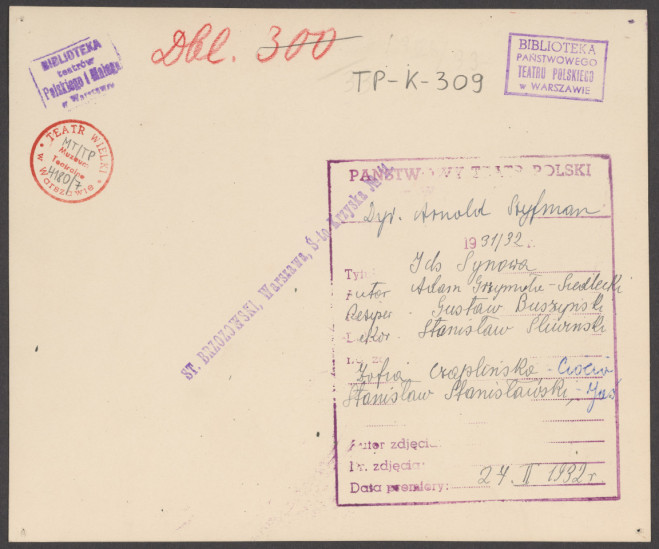 BIBLIOTEKA
teatrów
Polskiego i Małego
w Warszawie
Dbl. 300
TP-K-309
BIBLIOTEKA
PAŃSTWOWEGO
TEATRU POLSKIEGO
w WARSZAWIE
TEATR WIELKI
w Warszawie
MT/TP
Muzeum
Teatralne
4180/7
ST. BRZOZOWSKI, Warszawa, Ś-to Krzyska №
PAŃSTWOWY TEATR POLSKI
Dyr. Arnold Szyfman
1931/32 r.
Ich Synowa
Autor Adam Grzymała-Siedlecki
Reżyser Gustaw Buszyński
Dekor. Stanisław Śliwiński
Zofia Czaplińska - Ciocia
Stanisław Stanisławski, - Jaś
Autor zdjęcia:
Nr. zdjęcia:
Data premiery: 24. II 1932 r.